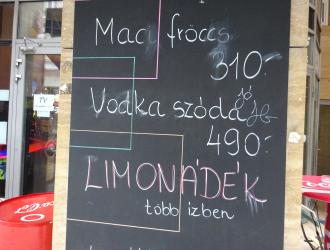 Maci fröccs
310.-
Vodka szóda jó
490.-
LIMONÁDÉK
több ízben
TV
Coca-Cola